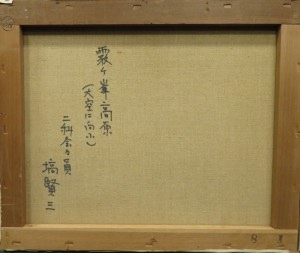 霧ヶ峯高原
(大空に向ふ)
二科会々員
塙賢三